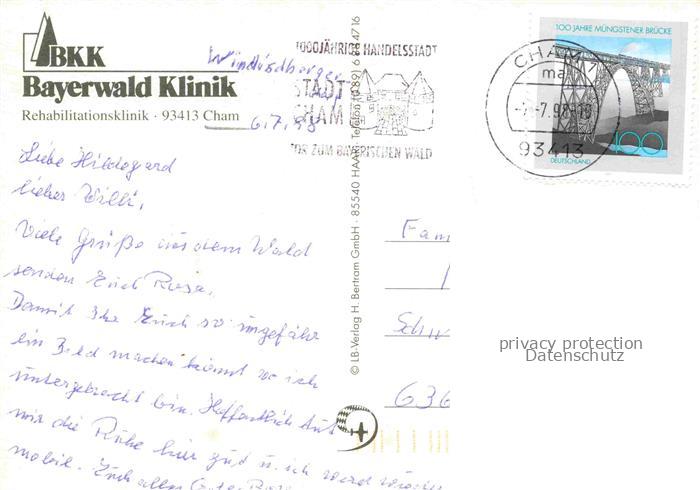 BKK
Bayerwald Klinik
Rehabilitationsklinik · 93413 Cham
Windischberger
6.7.98
1000JÄHRIGE HANDELSSTADT
STADT
CHAM
TOR ZUM BAYERISCHEN WALD
100 JAHRE MÜNGSTENER BRÜCKE
100
DEUTSCHLAND
CHAM
93413
Liebe Hildegard
lieber Willi,
Viele Grüße aus dem Wald
senden Euch Rosa.
Damit Ihr Euch so ungefähr
ein Bild machen könnt wo ich
untergebracht bin. Hoffentlich tut
mir die Ruhe hier gut u. ich werd wieder
mobil. Euch allen Gute
© LB-Verlag H. Bertram GmbH · 85540 HAAR · Telefon (089) 6 88 47 16
Fam
Schw
636
privacy protection
Datenschutz